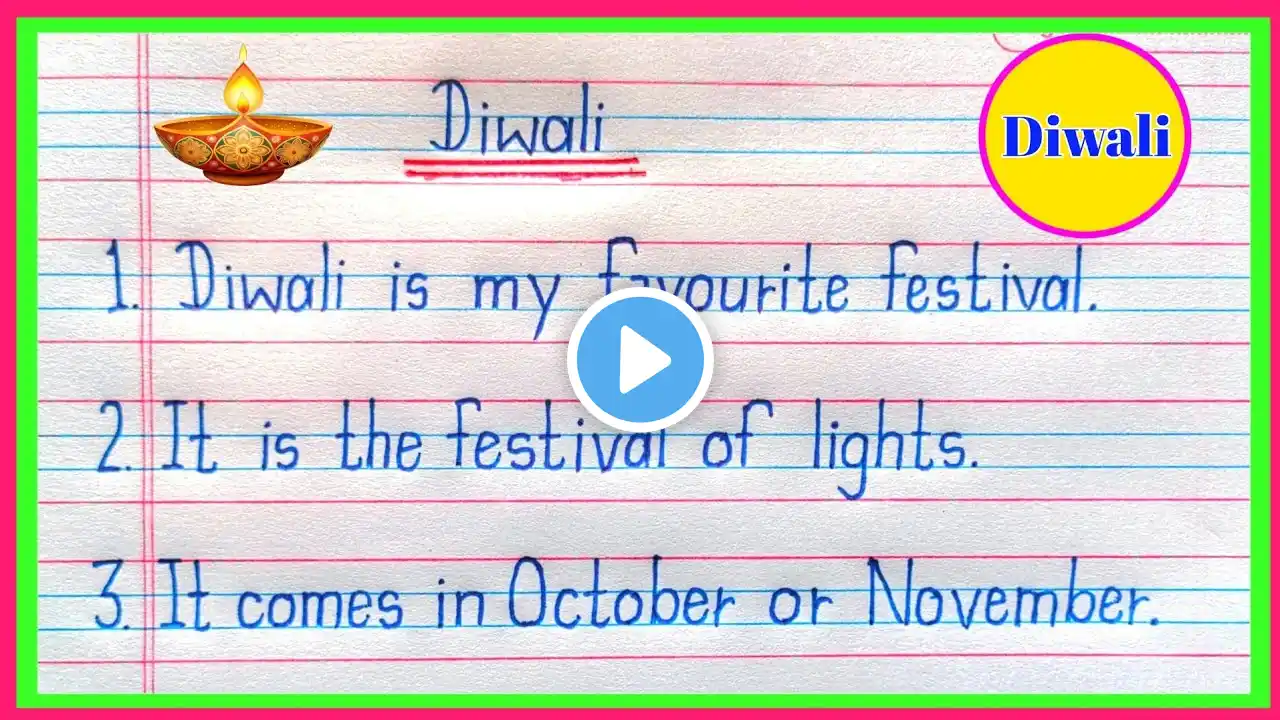 Diwali
Diwali
1. Diwali is my favourite festival.
2. It is the festival of lights.
3. It comes in October or November.